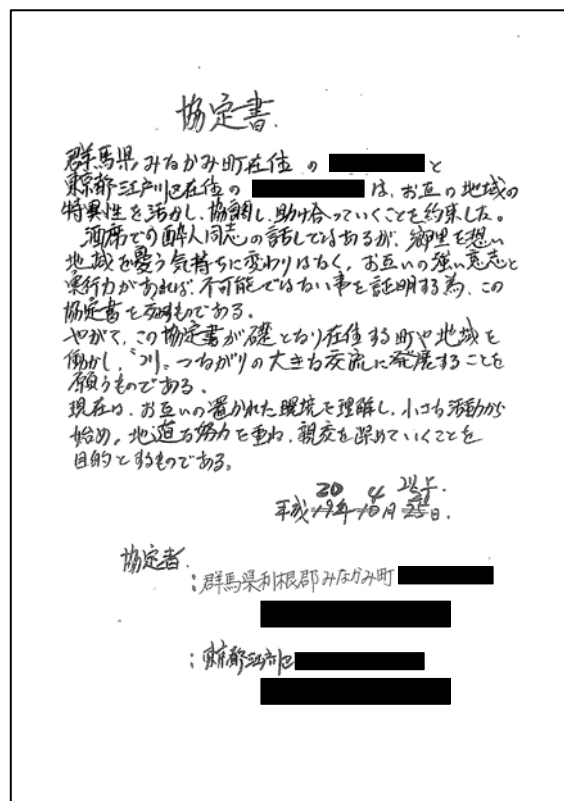 協定書.
群馬県みなかみ町在住の と
東京都江戸川区在住の は、お互の地域の
特異性を活かし、協調し、助け合っていくことを約束した。
酒席での酔人同志の話してはあるが、郷里を想い
地域を憂う気持ちに変わりはなく、お互いの強い意志と
実行力があれば不可能ではない事を証明する為、この
協定書を交すものである。
やがて、この協定書が礎となり在住する町や地域を
働かし、“川„つながりの大きな交流に発展することを
願うものである。
現在は、お互いの置かれた環境を理解し、小さな活動から
始め、地道な努力を重ね、親交を深めていくことを
目的とするものである。
20 4
平成19年10月25日.
協定者.
:群馬県利根郡みなかみ町
:東京都江戸川区